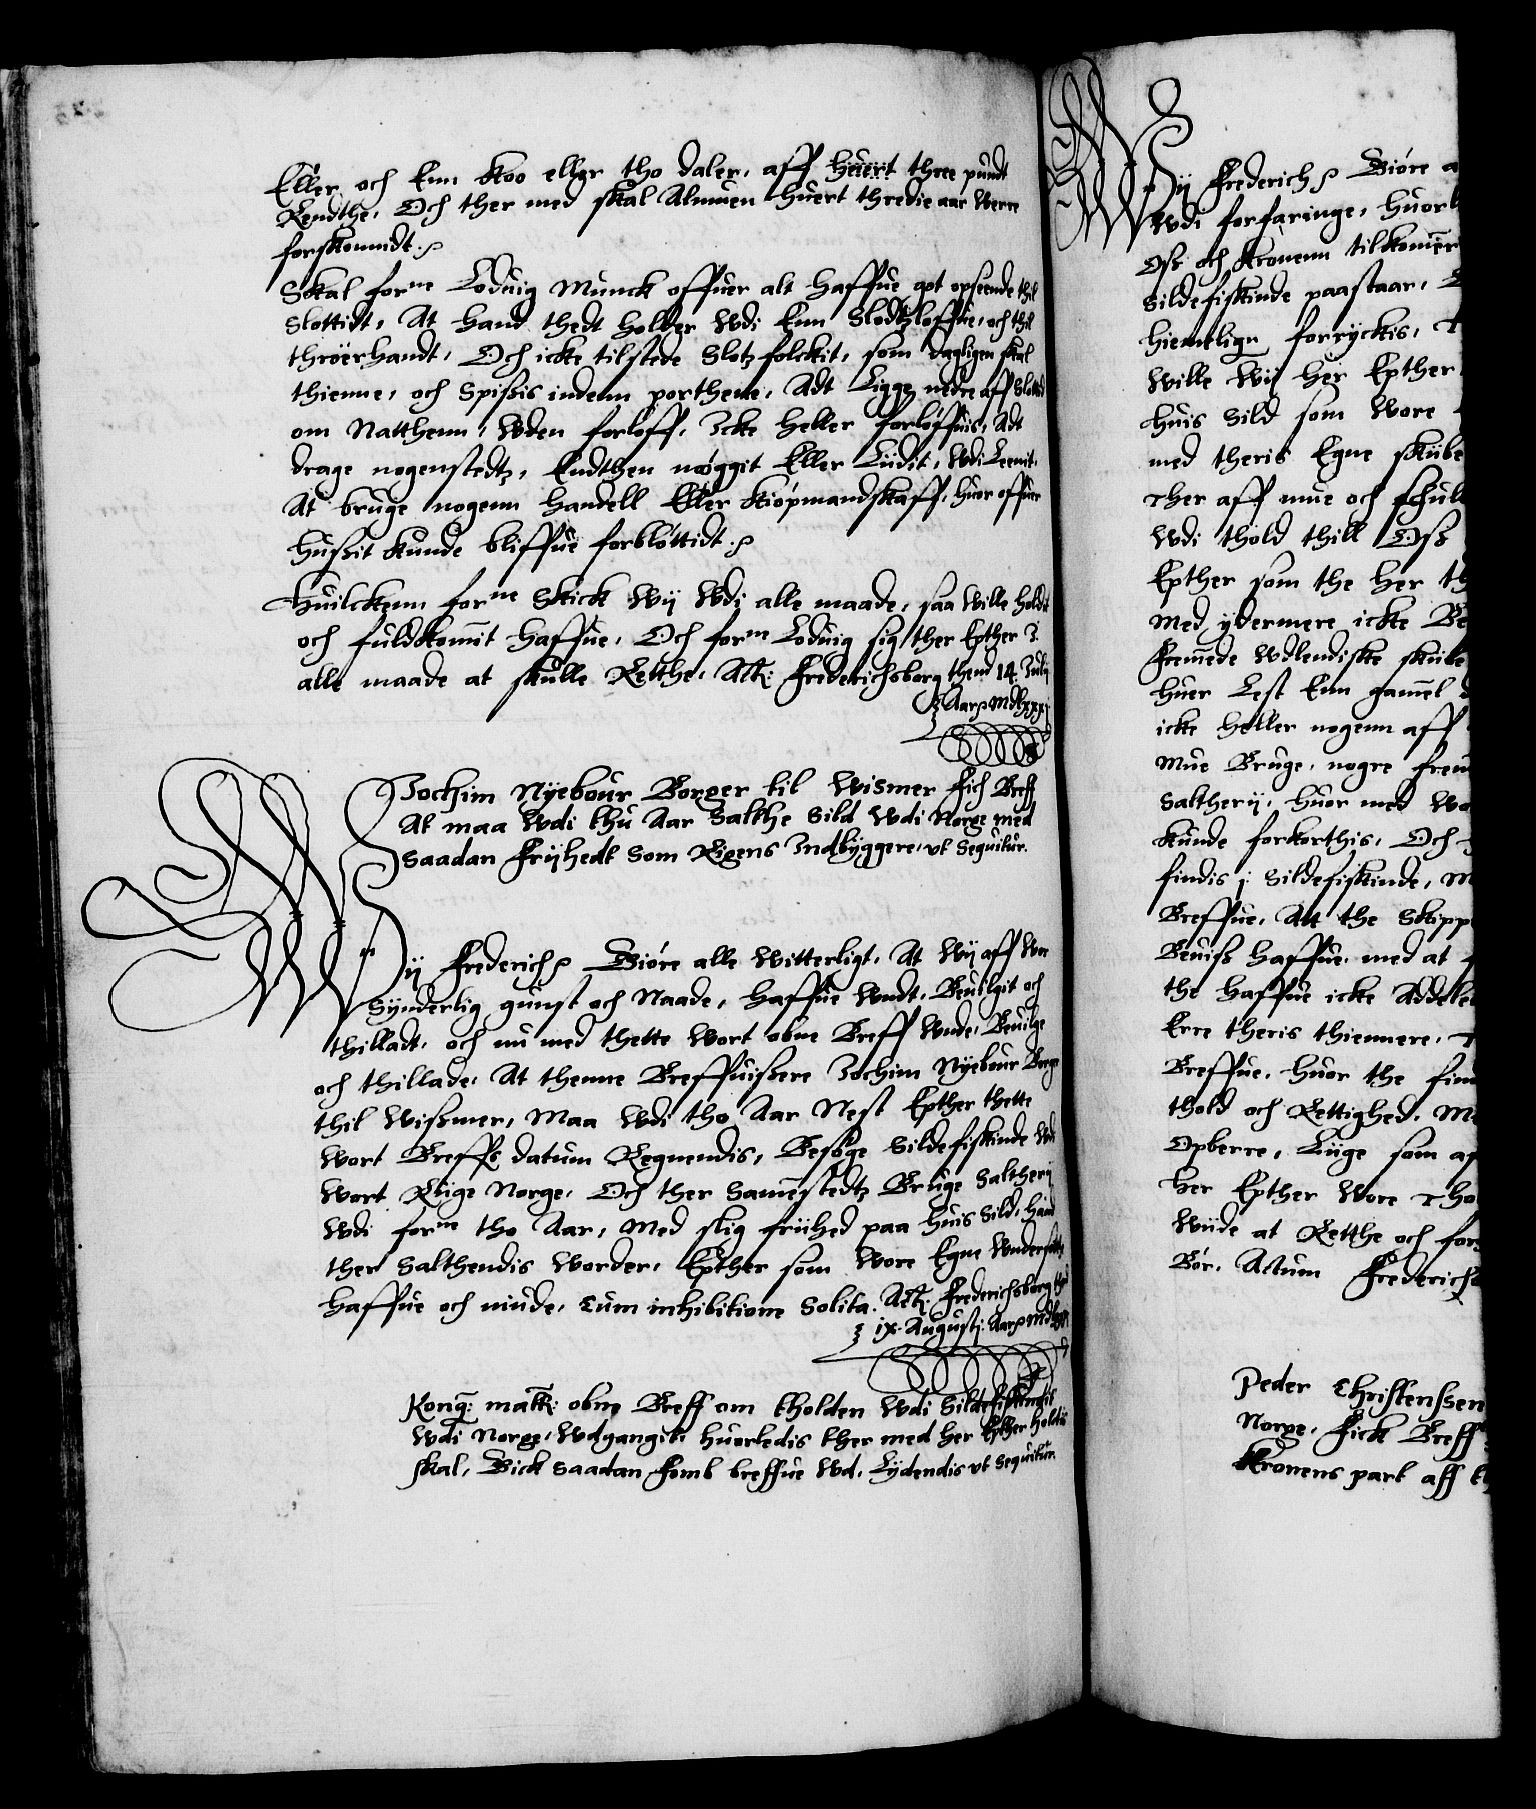 Eller och Enn Koo eller tho daler, aff huert three pundt
Rendthe, Och ther med skal Almuen huert thredie aar Werre
forskonnidt.
Skal forne Loduig Munck offuer alt haffue got opseende thil
Slottidt, At hand thedt holder Wdi Enn Slodtzloffue, och thil
throerhandt, Och icke tilstede Slotz folckit, som dagligen skal
thienne, och Spissis indenn porthene, Adt Ligge nedre aff Slottid
om Natthenn, Wden forloff, Icke heller forloffuis, Adt
drage nogenstedtz, Endthen nøggit Eller Lüdit, Wdi Leenit,
At bruge nogenn Handell Eller Kiøpmandskaff, huor offuer
hussit kunde bliffue forbløttidt.
Huilckenn forne Skick Wij Wdi alle maade, saa Wille holdit
och fuldkomit haffue, Och forne Loduig sig ther Epther I
alle maade at skulle Retthe, Actt: Frederichsborg thend 14. Julij
Aar MDlxxxj
Jochim Nyebour Borger til Wismer Fich Breff
At maa Wdi thu Aar Salthe Sild Wdi Norge med
Saadan Frijhedt Som Rigens Indbyggere, vt Sequitur.
Wij Frederich Giøre alle Witterligt, At Wij aff Wor
Synderlig gunst och Naade, haffue Wndt, Beuilgit och
thilladt, och nu med thette Wort obne Breff Wnde, Beuilge
och thillade, At thenne Breffuissere Jochim Nyebour Borge
thil Wissmer, Maa Wdi tho Aar Nest Epther thette
Wort Breffs datum Regnendis, Besøge Sildefiskinde Wdi
Wort Rige Norge, Och ther Samestedtz Bruge Saltherij
Wdi forne tho Aar, Med slig friihed paa huis Sild, hand
ther Salthendis Worder, Epther som Wore Egne Wndersatte
haffue och niude, Cum inhibitione Solita. Actt: Frederichsborg thend
ix. Augustj Aar MDlxxxj
Konge: matt: obne Breff om tholden Wdi Sildefiskendis
Wdi Norge, Wdgangit, huorledis ther med her Epther holdis
skal, Gick Saadan Femb breffue Wd, Lydendis vt Sequitur.
Wij Frederich Giøre a
Wdi forfaringe, huorl
Oss och Kronenn tilkomer
Sildefiskinde paastaar,
hiemelign forryckis, T
Wille Wij her Epther
huis Sild som Wore
med theris Egne skube
Ther aff nue och schul
Wdi thold thill Oss
Epther som the her th
Med ydermere icke Be
Fremede Wdlendiske skube
huer Lest Enn gamel d
icke heller nogenn aff
Mue Bruge, nogre frem
Saltherij, huor med Wo
kunde forkorthis, Och
findis j Sildefiskinde, M
Breffue, Att the Skipp
Beuiss haffue, med at
the haffue icke Addele
Erre theris thiennere, T
Breffue, huor the fin
thold och Rettighed, Me
Opberre, Liige som a
her Epther Wore Tho
Wiide at Retthe och for
Bør, Actum Frederichs
Peder Christenssen
Norge, Fick Breff
Kronens part aff t